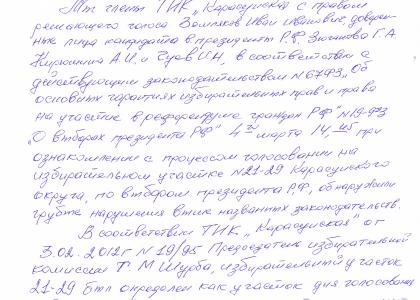 Мы члены ТИК „Карасунская" с правом
решающего голоса Иван Иванович, доверен-
ные лица кандидата в президенты Р.Ф. Зюганова Г.А.
А.И. и И.Н, в соответствии с
действующим законодательством N67ФЗ „Об
основных гарантиях избирательных прав и права
на участие в референдуме граждан РФ" N19-ФЗ
„О выборах президента РФ" 4го марта 14,45 при
ознакомлении с процессом голосования на
избирательном участке N21-29 Карасунского
округа, по выборам президента РФ, обнаружили
грубые нарушения выше названных законодательств.
В соответствии ТИК „Карасунская" от
3.02.2012г N 19/95 Председатель избирательной
комиссии Т.М Шурба, избирательный участок
21-29 был определен как участок дня голосования